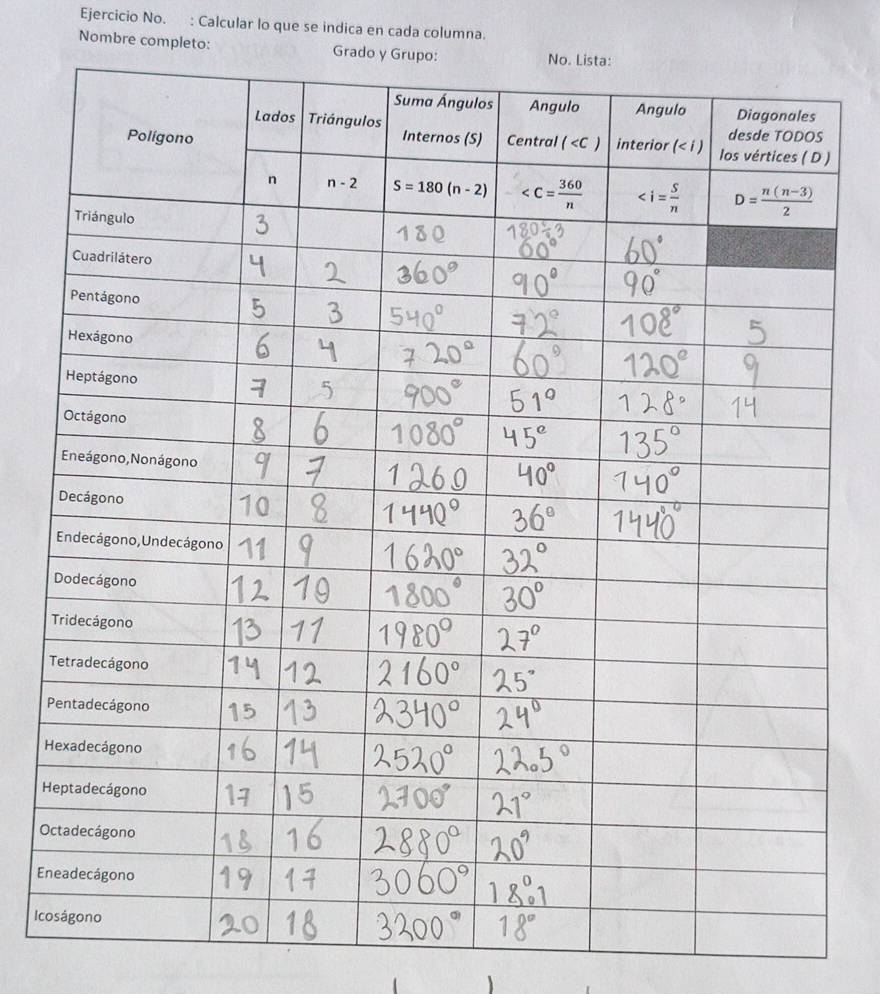 Ejercicio No. : Calcular lo que se indica en cada columna.
Nombre completo: Grado y Grupo: No. Lista:
Polígono Lados Triángulos Suma Ángulos Internos (S) Angulo Central ( <C ) Angulo interior (< i ) Diagonales desde TODOS los vértices ( D )
n n - 2 S = 180 (n - 2) < C = 360/n < i = S/n D = n ( n−3)/2
Triángulo 3 180 180÷3 60° 60°
Cuadrilátero 4 2 360° 90° 90°
Pentágono 5 3 540° 72° 108° 5
Hexágono 6 4 720° 60° 120° 9
Heptágono 7 5 900° 51° 128° 14
Octágono 8 6 1080° 45° 135°
Eneágono,Nonágono 9 7 1260 40° 140°
Decágono 10 8 1440° 36° 1440°
Endecágono,Undecágono 11 9 1620° 32°
Dodecágono 12 10 1800° 30°
Tridecágono 13 11 1980° 27°
Tetradecágono 14 12 2160° 25°
Pentadecágono 15 13 2340° 24°
Hexadecágono 16 14 2520° 22.5°
Heptadecágono 17 15 2700° 21°
Octadecágono 18 16 2880° 20°
Eneadecágono 19 17 3060° 18°.1
Icoságono 20 18 3200° 18°